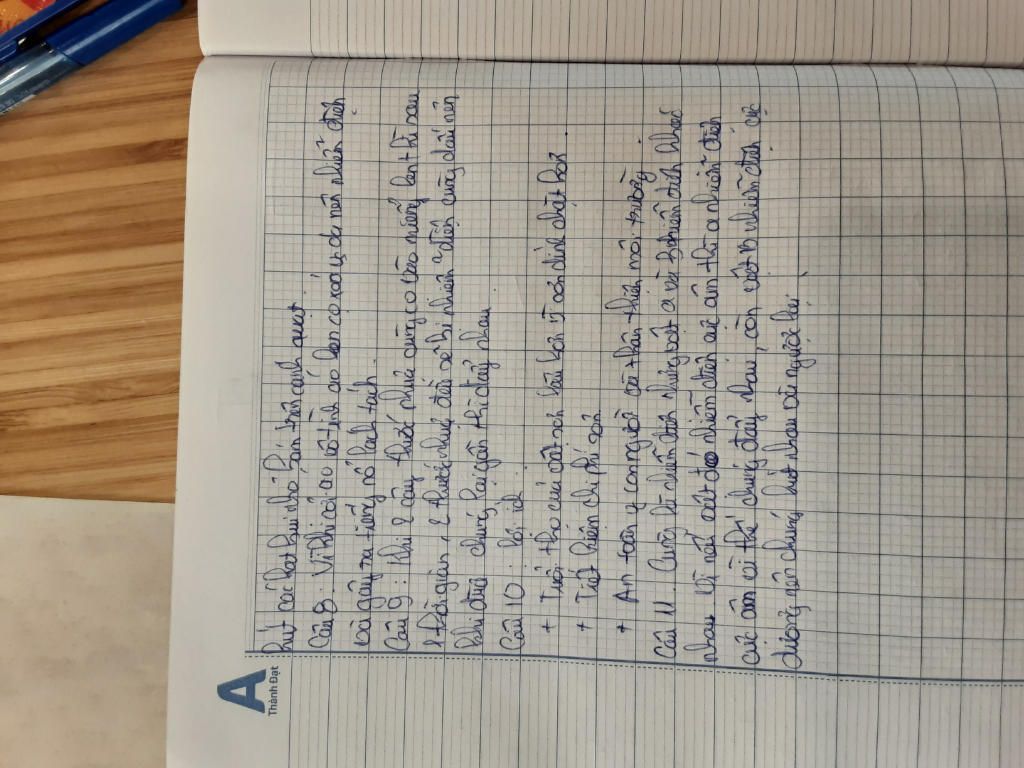 A
Thành Đạt
hút các hạt bụi nhỏ bám trên cánh quạt
Câu 8: Vì khi cởi áo vô tình áo len cọ xát với da nên nhiễm điện
và gây ra tiếng nổ lách tách.
Câu 9: Khi 2 cây thước nhựa cùng cọ vào miếng len thì sau
1 thời gian, 2 thước nhựa đều sẽ bị nhiễm điện cùng dấu nên
khi đưa chúng lại gần thì đẩy nhau
Câu 10: Lợi ích:
+ Tuổi thọ của vật sơn lâu hơn vì bám dính chặt hơn.
+ Tiết kiệm chi phí sơn
+ An toàn với con người và thân thiện môi trường.
Câu 11: Cường bị nhiễm điện nhưng vật a và b nhiễm điện khác
nhau. Vì nếu vật đó nhiễm điện cực âm thì a nhiễm điện
cực âm vì thế chúng đẩy nhau, còn vật B nhiễm điện cực
dương nên chúng hút nhau và ngược lại